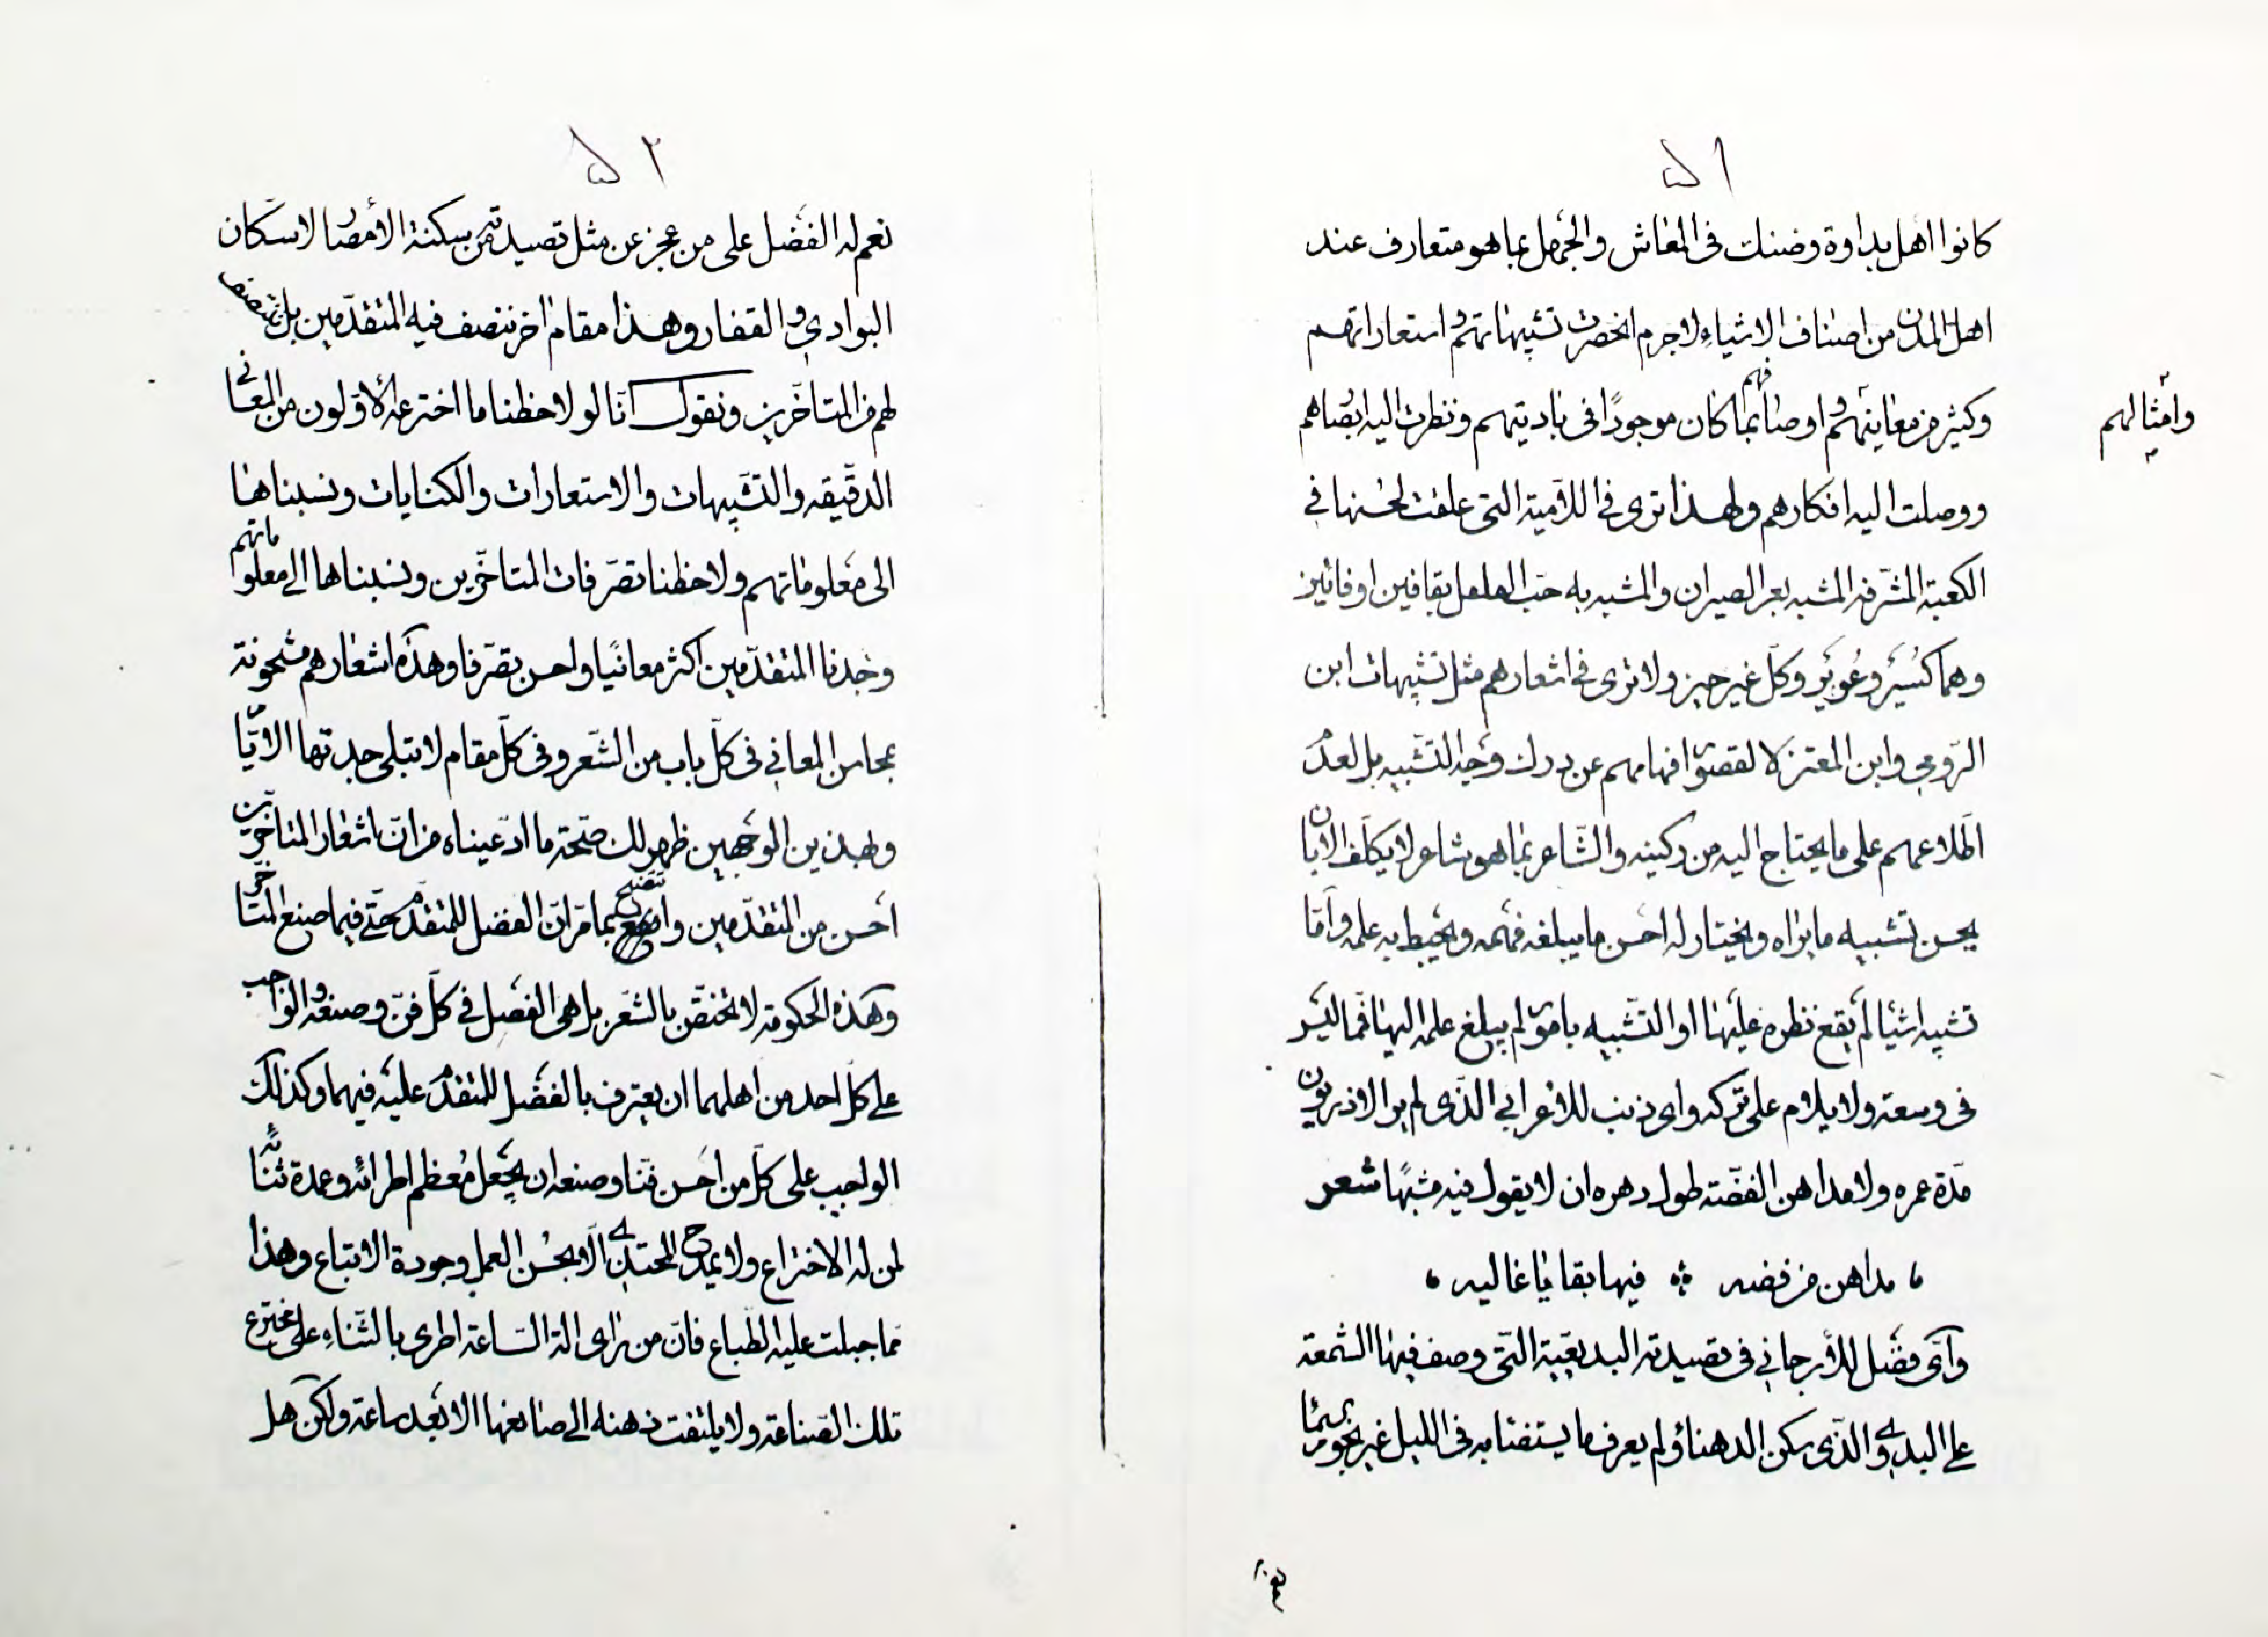 ٥١
كانوا اهل بداوة وضنك فى المعاش والجهل بما هو متعارف عند
اهل المدن من اصناف الاشياء لا جرم انحصرت تشبيهاتهم واستعاراتهم
وامثالهم
وكثير من معانيهم واوصافهم بما كان موجودًا فى باديتهم ونظرت اليه ابصارهم
ووصلت اليه افكارهم ولهذا ترى فى اللاميّة التى علقت لحسنها فى
الكعبة المشرفة المشبه بعر الصيران والمشبه به حبّ الفلفل بقافين او فائين
وهما كسُيَر وعُوَيْر وكلّ غير خير ولا ترى فى اشعارهم مثل تشبيهات ابن
الرّومى وابن المعتز لا لقصور افهامهم عن درك وجه التّشبيه بل لعدم
اطّلاعهم على ما يحتاج اليه من ركينه والشّاعر بما هو شاعر لا يكلّف الا بان
يحسن تشبيه ما يراه ويختار له احسن ما يبلغه فهمه ويحيط به علمه وامّا
تشبيه اشيا لم يقع نظره عليها او التّشبيه بامور لم يبلغ علمه اليها فمّا ليس
فى وسعه ولا يلام على تركه واى ذنب للاعرابى الذى لم ير الاذريون
مدّة عمره ولا مداهن الفضّة طول دهره ان لا يقول فيه مشبهًا شعر
مداهن من فضه ؞ فيها بقايا غاليه
واىّ فضل للأرجانى فى قصيدته البديعيّة التّى وصف فيها الشّمعة
على البدوى الذّى سكن الدهناء ولم يعرف ما يستضئا به فى الليل غير نجوم السّما
٥٢
نعم له الفضل على من عجز عن مثل قصيدته من سكنة الأمصار لا سكّان
البوادى والقفار وهذا مقام اخر ننصف فيه المتقدّمين بل ننتصف
لهم من المتاخّرين ونقول انّا لو لاحظنا ما اخترعه الأوّلون من المعانى
الدقيقه والتّشبيهات والاستعارات والكنايات ونسبناها
الى معلوماتهم ولاحظنا تصرّفات المتاخّرين ونسبناها الى معلوماتهم
وجدنا المتقدّمين اكثر معانيًا واحسن تصرّفا وهذه اشعارهم مشحونة
بمحاسن المعانى فى كلّ باب من الشّعر وفى كلّ مقام لا تبلى جدتها الايّام
وبهذين الوجهين ظهر لك صحّة ما ادّعيناه من انّ اشعار المتاخّرين
احسن من المتقدّمين واتضح بما مرّ انّ الفضل للمتقدّم حتّى فيما صنع المتاخّر
وهذه الحكومة لا تختصّ بالشّعر بل هى الفصل فى كلّ فنّ وصنعه والواجب
على كلّ احد من اهلهما ان يعترف بالفضل للمتقدّم عليه فيهما وكذلك
الواجب على كلّ من احسن فنّا وصنعه ان يجعل مُعظم اطرائه وعمدة ثنائه
لمن له الاختراع ولا يمدح المحتذى الّا بحُسن العمل وجودة الاتباع وهذا
مما جبلت عليه الطّباع فانّ من راى الة السّاعة اطرى بالثّناء على مخترع
تلك الصّناعة ولا يلتفت ذهنه الى صانعها الا بعد ساعة ولكن هل